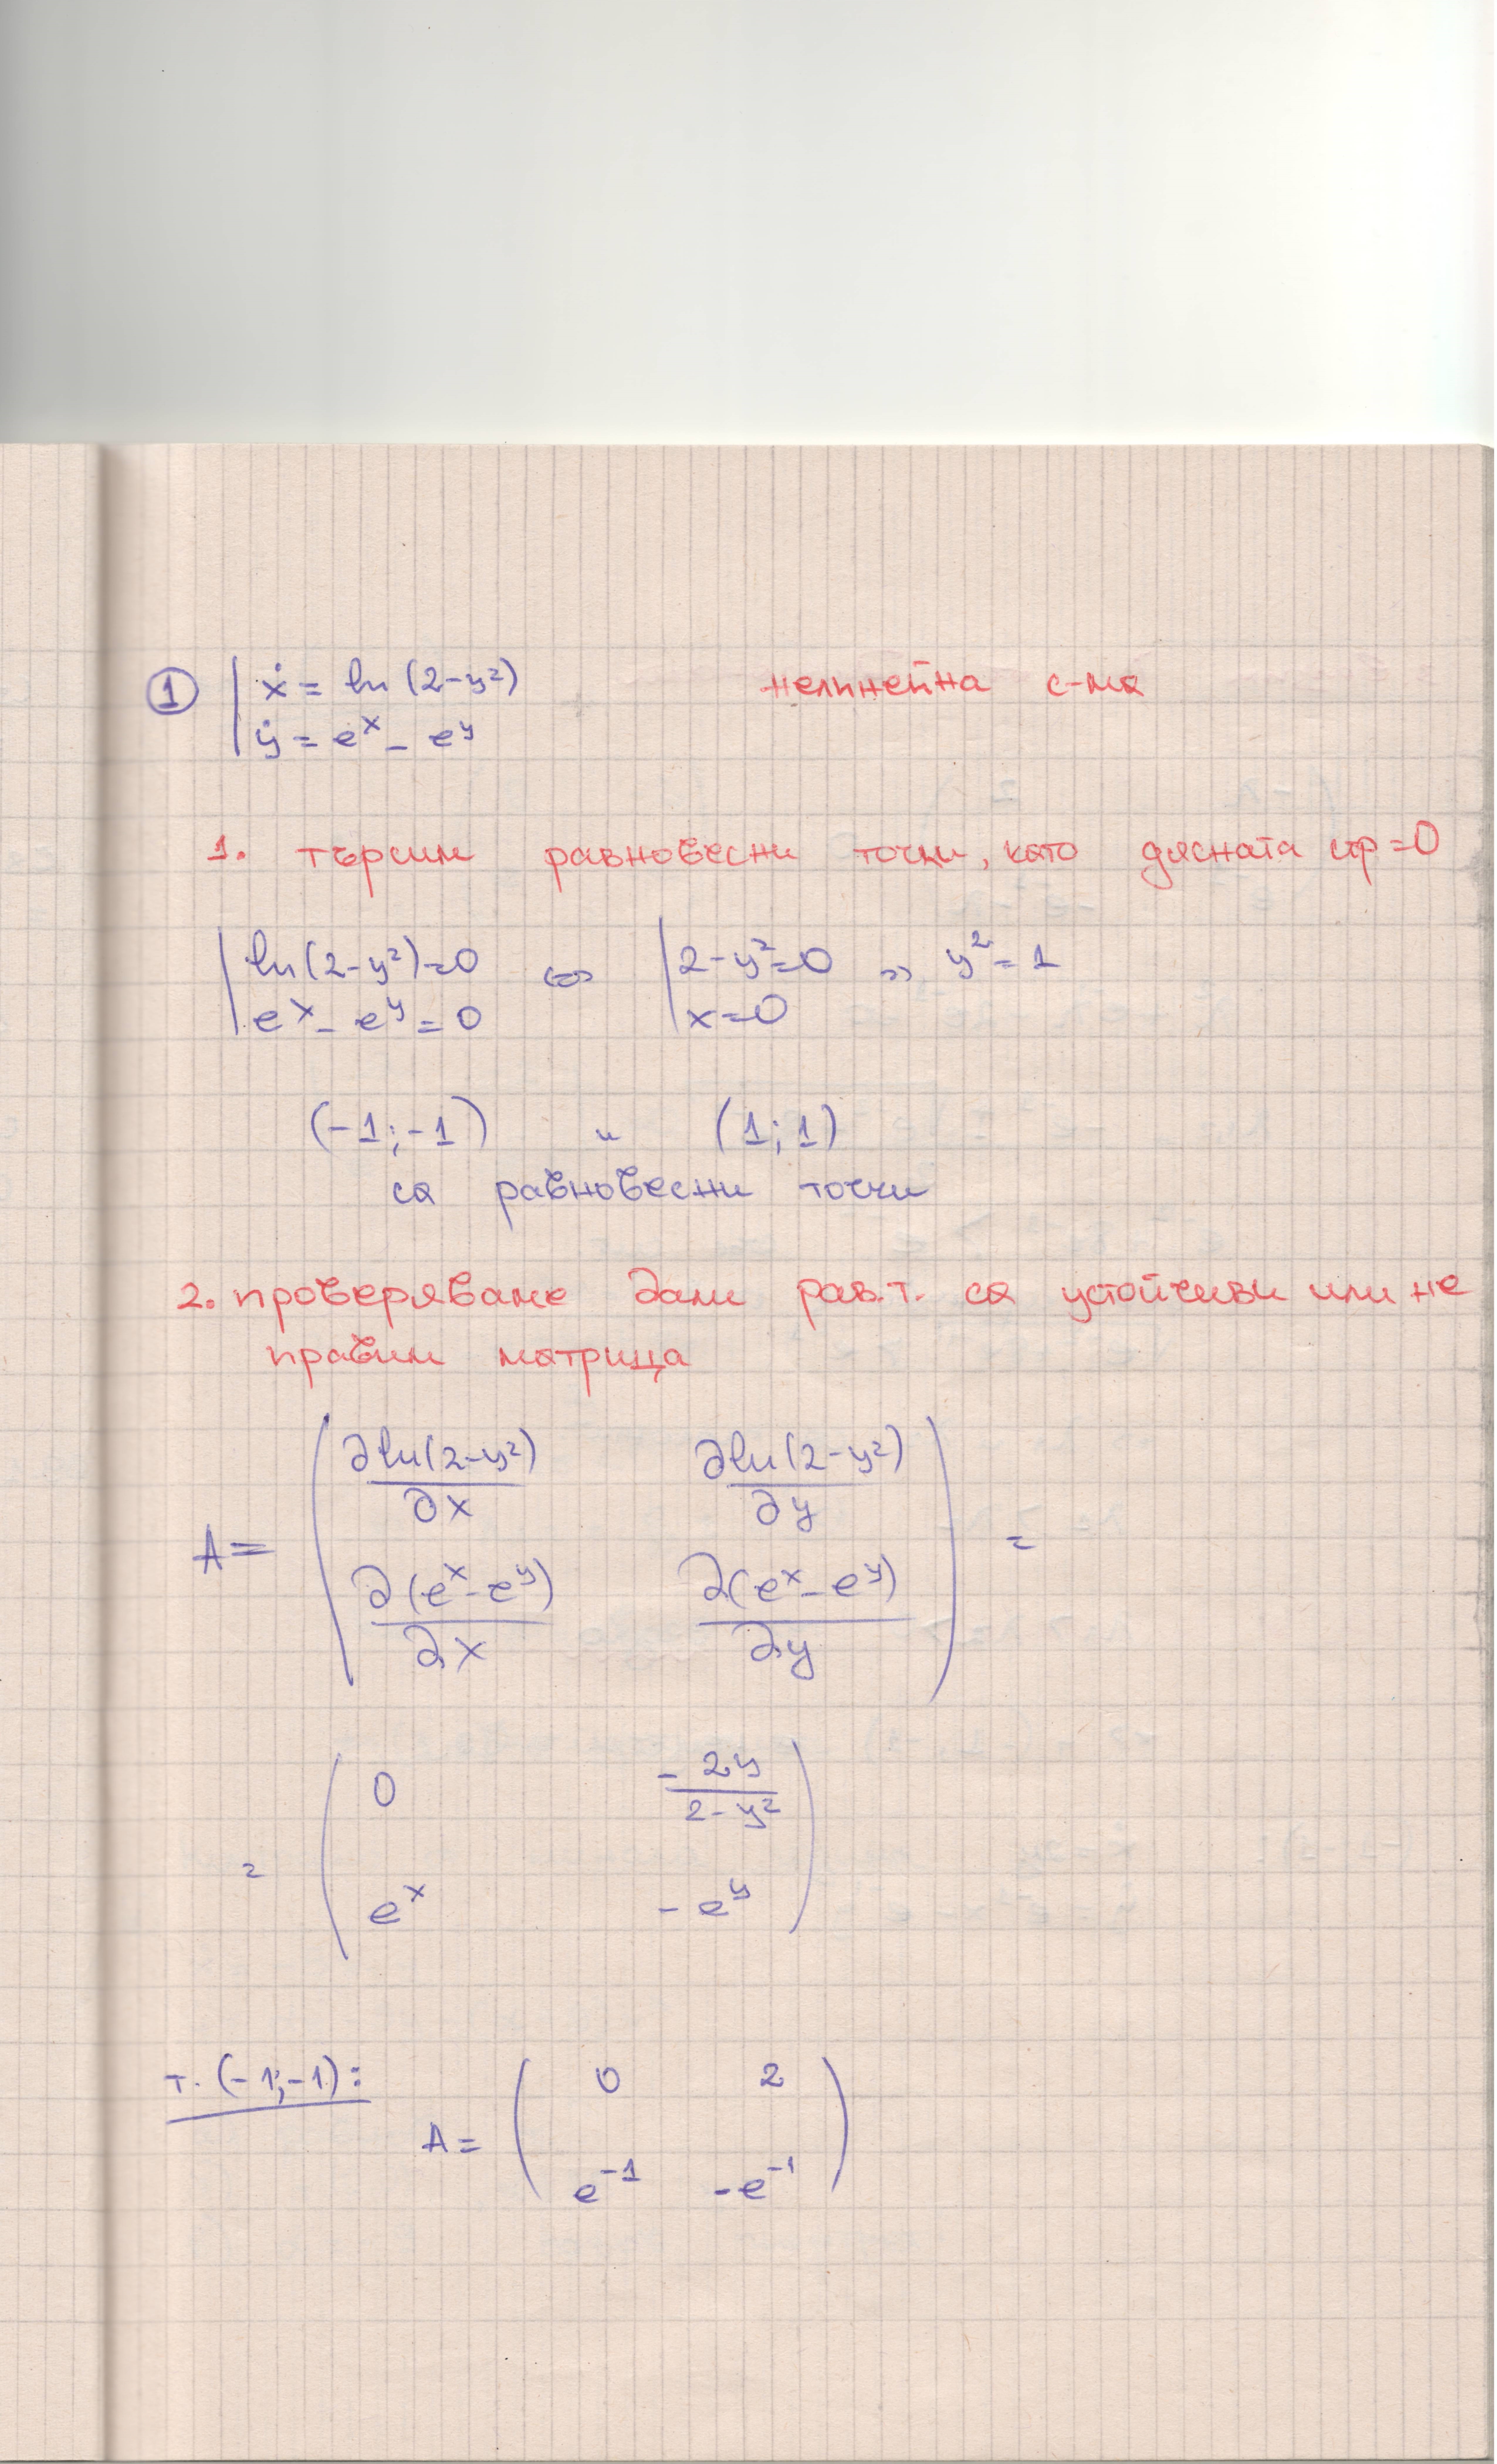 ① | ẋ = ln (2-y²) нелинейна с-ма
| ẏ = eˣ - eʸ
1. търсим равновесни точки, като дясната стр=0
| ln(2-y²)=0 ⇔ | 2-y²=0 » y²=1
| eˣ - eʸ = 0 | x=0
(-1;-1) и (1;1)
са равновесни точки
2. проверяваме дали рав.т. са устойчиви или не
правим матрица
∂ln(2-y²) ∂ln(2-y²)
∂x ∂y
A= =
∂(eˣ-eʸ) ∂(eˣ-eʸ)
∂x ∂y
0 - 2y
2-y²
=
eˣ - eʸ
т. (-1;-1):
0 2
A=
e⁻¹ -e⁻¹